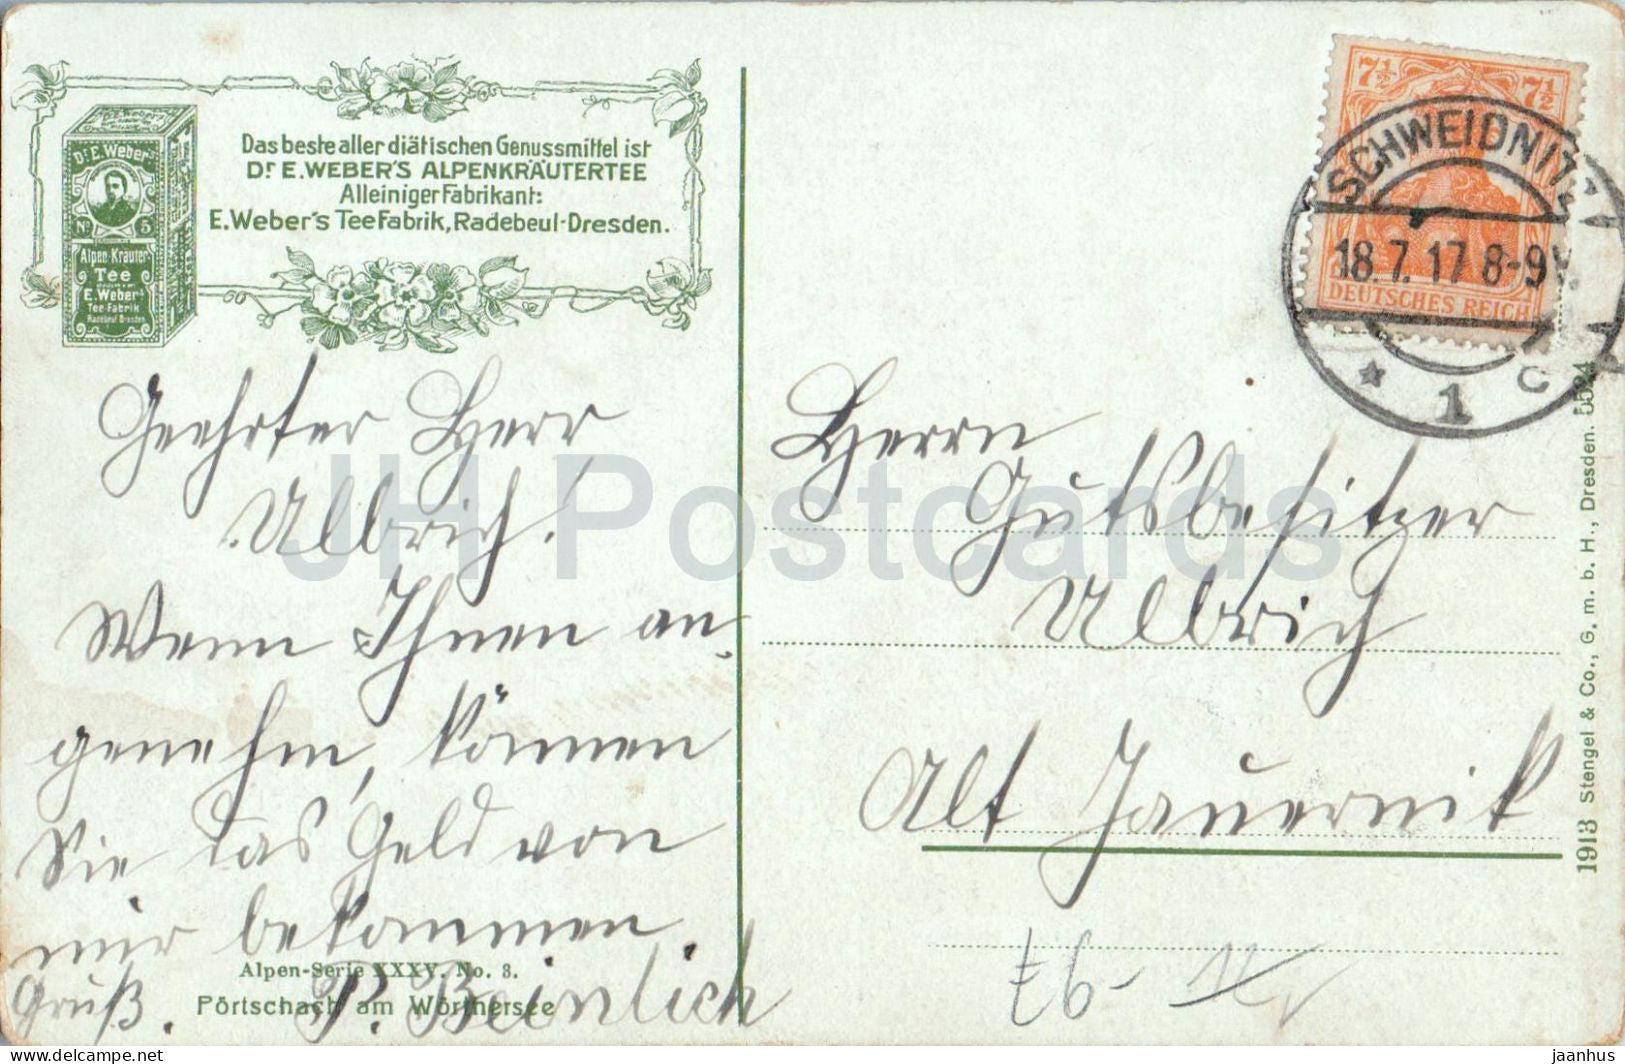 Das beste aller diätischen Genussmittel ist
Dr. E. WEBER'S ALPENKRÄUTERTEE
Alleiniger Fabrikant:
E. Weber's Tee Fabrik, Radebeul-Dresden.
Dr. E. Weber's
No 5
Alpen-Kräuter
Tee
E. Weber's
Tee-Fabrik
Radebeul-Dresden
Geehrter Herr
Ulbrich!
Wenn Ihnen an-
genehm, können
Sie das Geld von
mir bekommen.
Gruß. P. Beinlich
Alpen-Serie XXXV. No. 3.
Pörtschach am Wörthersee
7½ 7½
DEUTSCHES REICH
SCHWEIDNITZ
18.7.17 8-9V.
* 1 c
Herrn
Gutsbesitzer
Ulbrich
Alt Jauernik
1913 Stengel & Co., G. m. b. H., Dresden. 5524
JH Postcards
delcampe.net
jaanhus